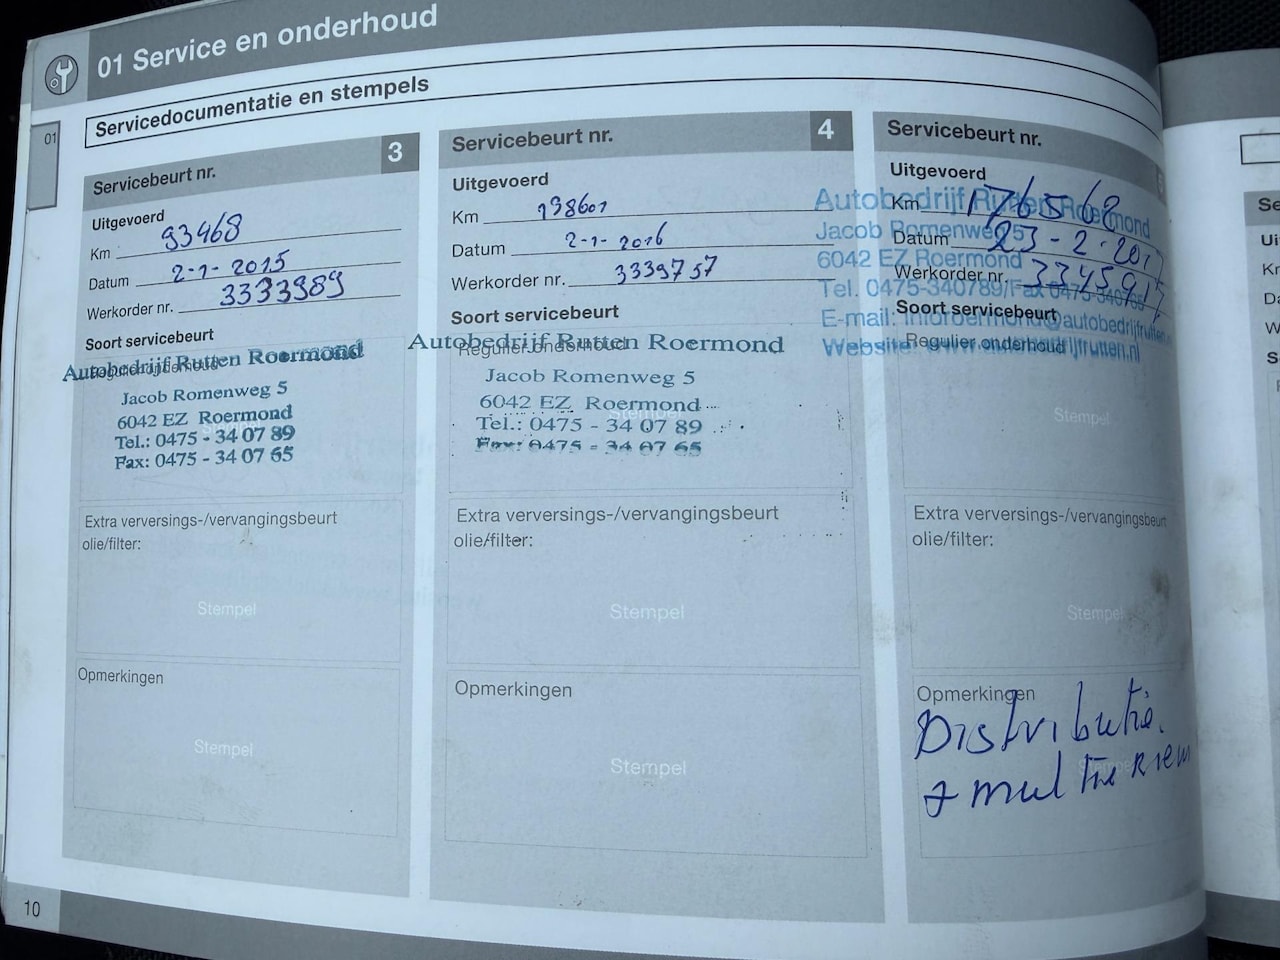 01 Service en onderhoud
Servicedocumentatie en stempels
01
Servicebeurt nr. 3
Uitgevoerd
Km 93468
Datum 2-1-2015
Werkorder nr. 3333989
Soort servicebeurt
Regulier onderhoud
Autobedrijf Rutten Roermond
Jacob Romenweg 5
6042 EZ Roermond
Tel.: 0475 - 34 07 89
Fax: 0475 - 34 07 65
Extra verversings-/vervangingsbeurt
olie/filter:
Stempel
Opmerkingen
Stempel
Servicebeurt nr. 4
Uitgevoerd
Km 138601
Datum 2-1-2016
Werkorder nr. 3339757
Soort servicebeurt
Regulier onderhoud
Autobedrijf Rutten Roermond
Jacob Romenweg 5
6042 EZ Roermond
Stempel
Tel.: 0475 - 34 07 89
Fax: 0475 - 34 07 65
Extra verversings-/vervangingsbeurt
olie/filter:
Stempel
Opmerkingen
Stempel
Servicebeurt nr.
Uitgevoerd
Km 176568
Datum 23-2-2017
Werkorder nr. 3345917
Autobedrijf Rutten Roermond
Jacob Romenweg 5
6042 EZ Roermond
Tel. 0475-340789/Fax 0475-340765
E-mail: inforoermond@autobedrijfrutten.nl
Website: www.autobedrijfrutten.nl
Soort servicebeurt
Regulier onderhoud
Stempel
Extra verversings-/vervangingsbeurt
olie/filter:
Stempel
Opmerkingen
Distributie.
+ multie Riem
10